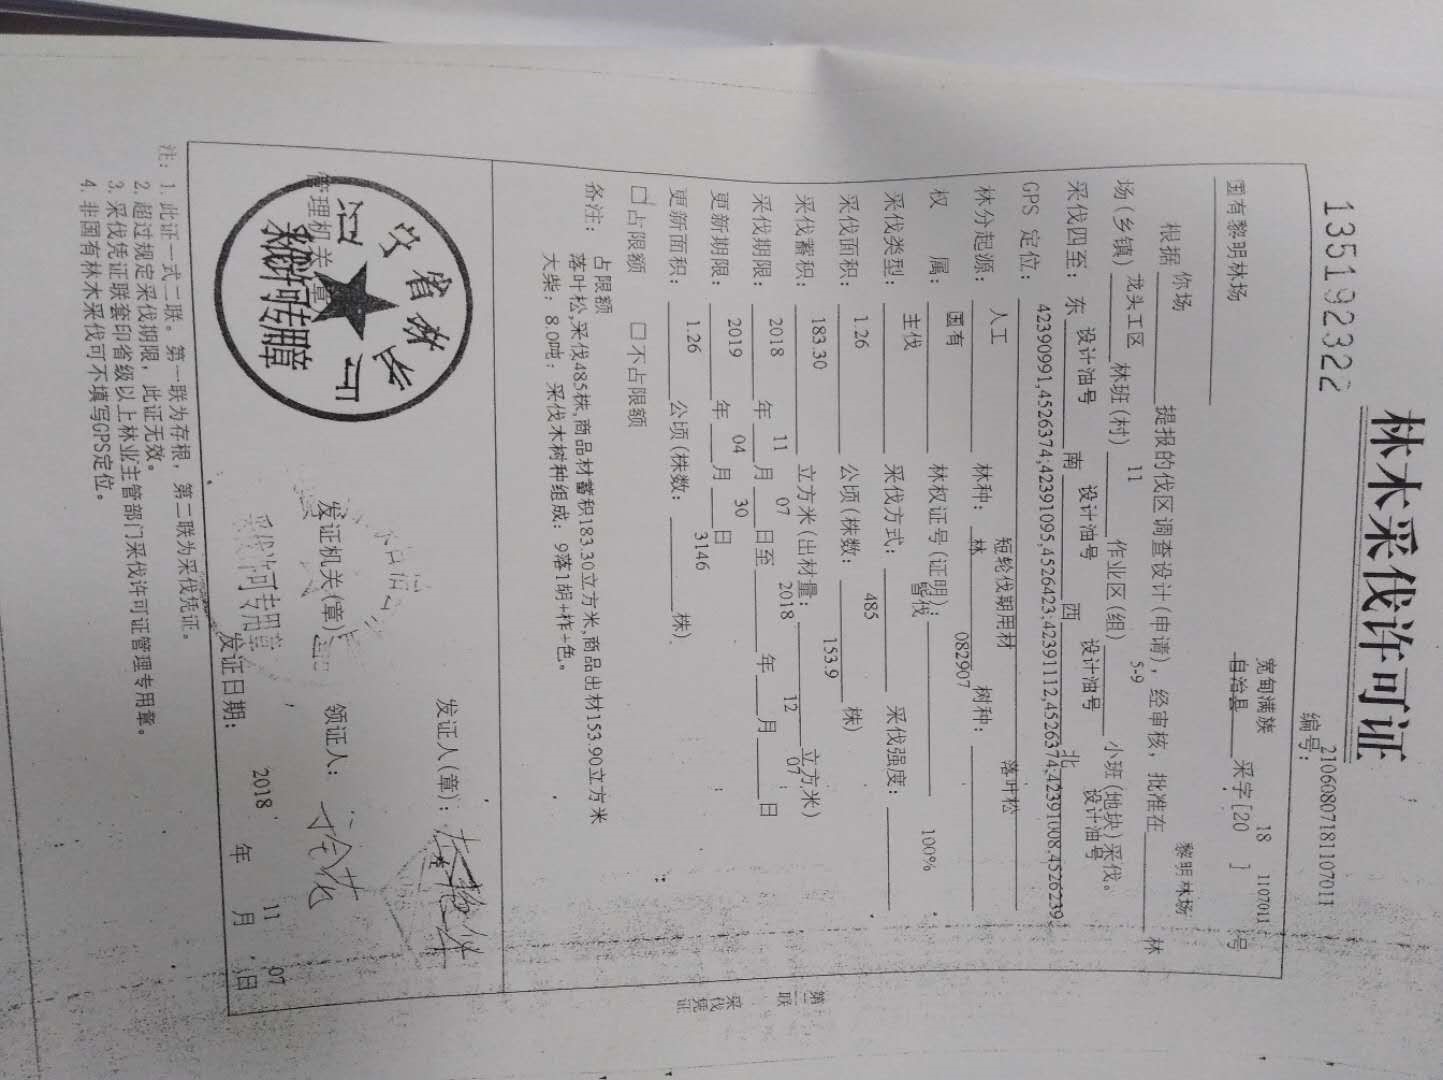 林木采伐许可证
编号：
210608071811070​11
1351923222
宽甸满族
自治县 采字[20 18 ] 1107011 号
国有黎明林场
根据 你场 提报的伐区调查设计(申请)，经审核，批准在 黎明林场 林
场(乡镇) 龙头工区 林班(村) 11 作业区(组) 5-9 小班(地块)采伐。
采伐四至：东 设计油号 南 设计油号 西 设计油号 北 设计油号
GPS 定位：42390991,4526374;42391095,4526423;42391112,4526374;42391008,4526239;
林分起源： 人工 林种： 短轮伐期用材林 树种： 落叶松
权 属： 国有 林权证号(证明)： 082907
采伐类型： 主伐 采伐方式： 皆伐 采伐强度： 100%
采伐面积： 1.26 公顷(株数： 485 株)
采伐蓄积： 183.30 立方米(出材量： 153.9 立方米)
采伐期限： 2018 年 11 月 07 日至 2018 年 12 月 07 日
更新期限： 2019 年 04 月 30 日
更新面积： 1.26 公顷(株数： 3146 株)
□占限额 □不占限额
备注： 占限额
落叶松,采伐485株,商品材蓄积183.30立方米,商品出材153.90立方米
大柴：8.0吨；采伐木树种组成：9落1胡+柞+色。
发证人(章)：
管理机关(章)
辽宁省林业厅
采伐许可专用章
发证机关(章)
采伐许可专用章
领证人：
发证日期： 2018 年 11 月 07 日
注：1. 此证一式二联。第一联为存根，第二联为采伐凭证。
2. 超过规定采伐期限，此证无效。
3. 采伐凭证联套印省级以上林业主管部门采伐许可证管理专用章。
4. 非国有林木采伐可不填写GPS定位。
第二联
采伐凭证